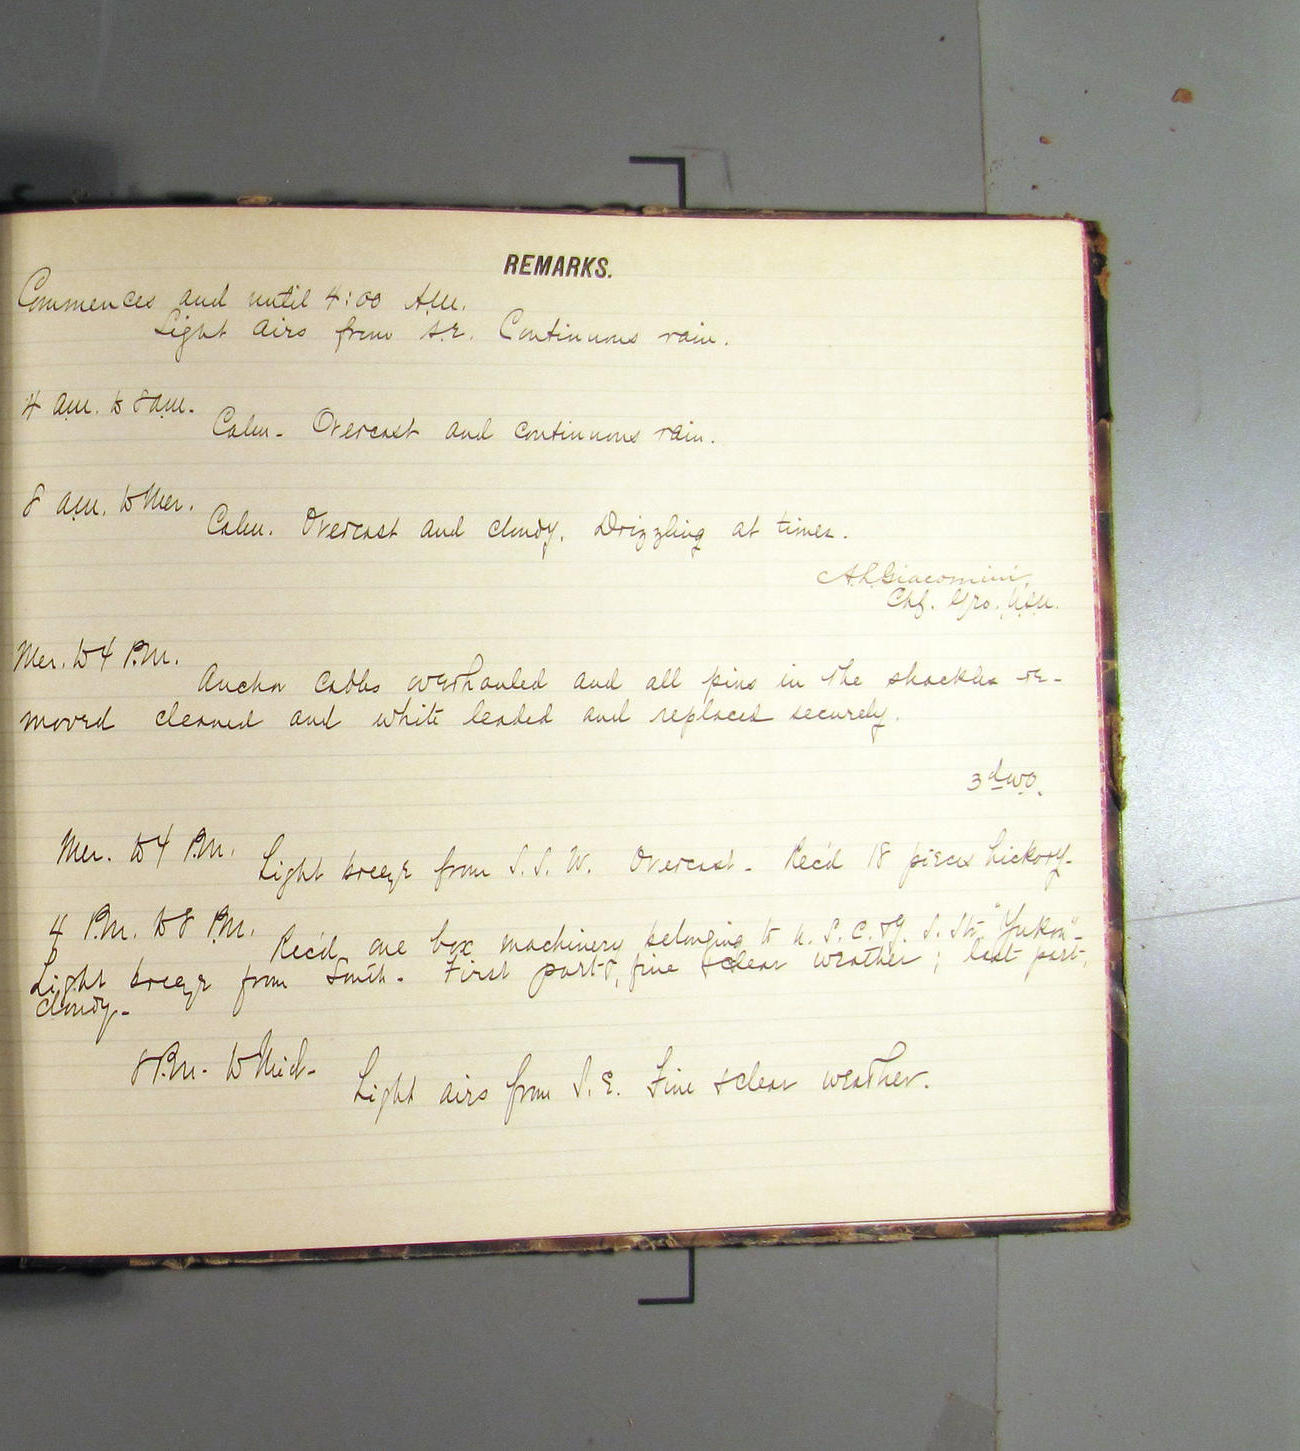 REMARKS.
Commences and until 4:00 A.M.
Light airs from S.E. Continuous rain.
4 a.m. to 8 a.m.
Calm. Overcast and continuous rain.
8 a.m. to Mer.
Calm. Overcast and cloudy. Drizzling at times.
A.L. Giacomini,
Chf. Gro. U.S.N.
Mer. to 4 P.M.
Anchor cables overhauled and all pins in the shackles re-
moved cleaned and white leaded and replaced securely.
3d W.O.
Mer. to 4 P.M. Light breeze from S.S.W. Overcast. Rec'd 18 pieces hickory.
4 P.M. to 8 P.M. Rec'd one box machinery belonging to U.S.C. & G. S. Str. "Yukon".
Light breeze from South. First part, fine & clear weather; last part,
cloudy.
8 P.M. to Mid. Light airs from S.E. Fine & clear weather.